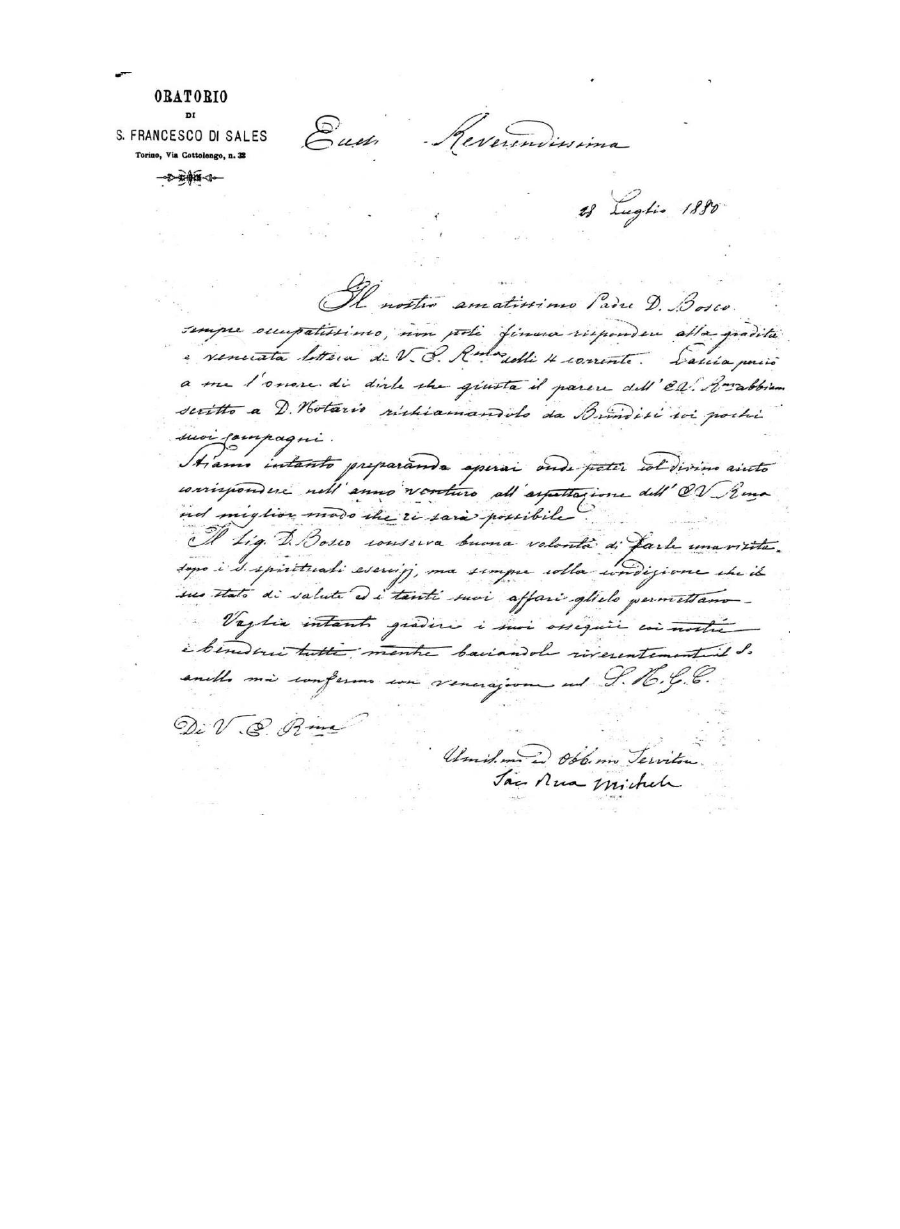 ORATORIO
DI
S. FRANCESCO DI SALES
Torino, Via Cottolengo, n. 32
Ecc. Reverendissima
28 Luglio 1880
Il nostro amatissimo Padre D. Bosco
sempre occupatissimo, non potè finora rispondere alla gradita
e venerata lettera di V. E. Rma delli 4 corrente. Lascia perciò
a me l'onore di dirle che giusta il parere dell' E.V. Rma abbiam
scritto a D. Notario richiamandolo da Brindisi coi pochi
suoi compagni.
Stiamo intanto preparando operai onde poter col divino aiuto
corrispondere nell' anno venturo all' aspettazione dell' E V. Rma
nel miglior modo che ci sarà possibile.
Il Sig. D. Bosco conserva buona volontà di farle una visita
dopo i s. spirituali esercizj, ma sempre colla condizione che il
suo stato di salute ed i tanti suoi affari glielo permettano.
Voglia intanto gradire i suoi ossequii coi nostri
e benedirci tutti, mentre baciandole riverentemente il S.
anello mi confermo con venerazione nel S. N. G. C.
Di V. E. Rma
Umil.mo ed Obb.mo Servitore
Sac. Rua Michele